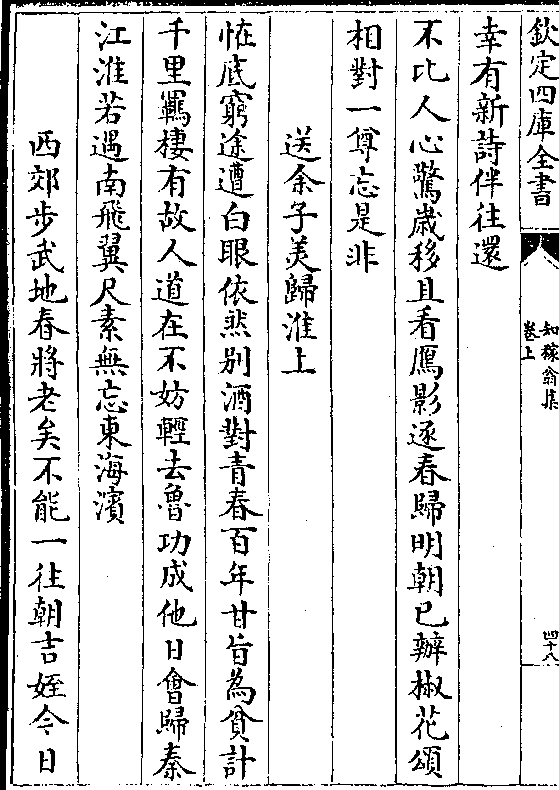 欽定四庫全書
知稼翁集
卷上
四十八
幸有新詩伴往還
不比人心驚歳移且看鴈影逐春歸明朝已辦椒花頌
相對一尊忘是非
送余子美歸淮上
恠底窮途遭白眼依然别酒對青春百年甘旨為貧計
千里羈棲有故人道在不妨輕去魯功成他日會歸秦
江淮若遇南飛翼尺素無忘東海濱
西郊步武地春將老矣不能一往朝吉姪今日